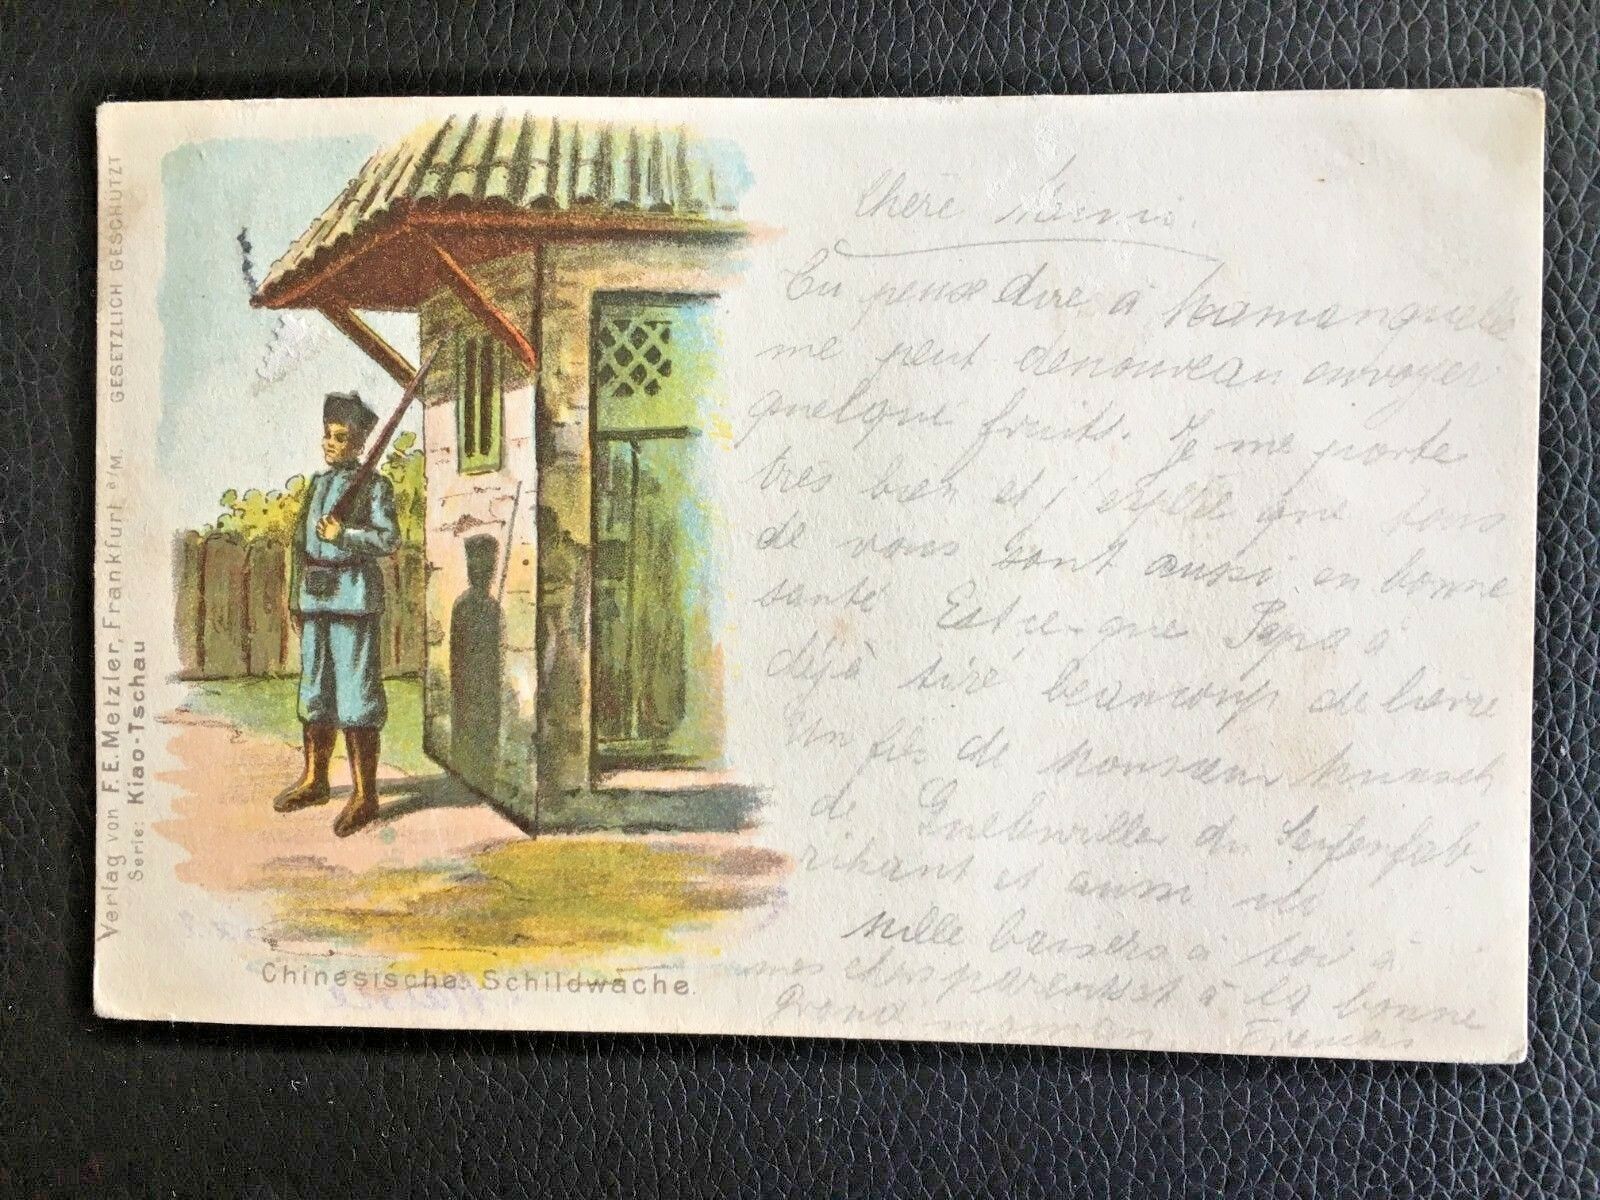 Verlag von F.E. Metzler, Frankfurt a/M. GESETZLICH GESCHÜTZT
Serie: Kiao-Tschau
Chinesische Schildwache.
Chère
Tu peux dire à Maman quelle
me peut denouveau envoyer
quelque fruits. Je me porte
très bien et j'espère que tous
de vous sont aussi en bonne
santé Est ce-que Papa a
déjà tiré beaucoup de lièvre
Un fils de Monsieur
de Guebwiller du Seifenfab-
rikant est aussi ici
Mille baisers à toi à
mes chers parents et à la bonne
Grand maman